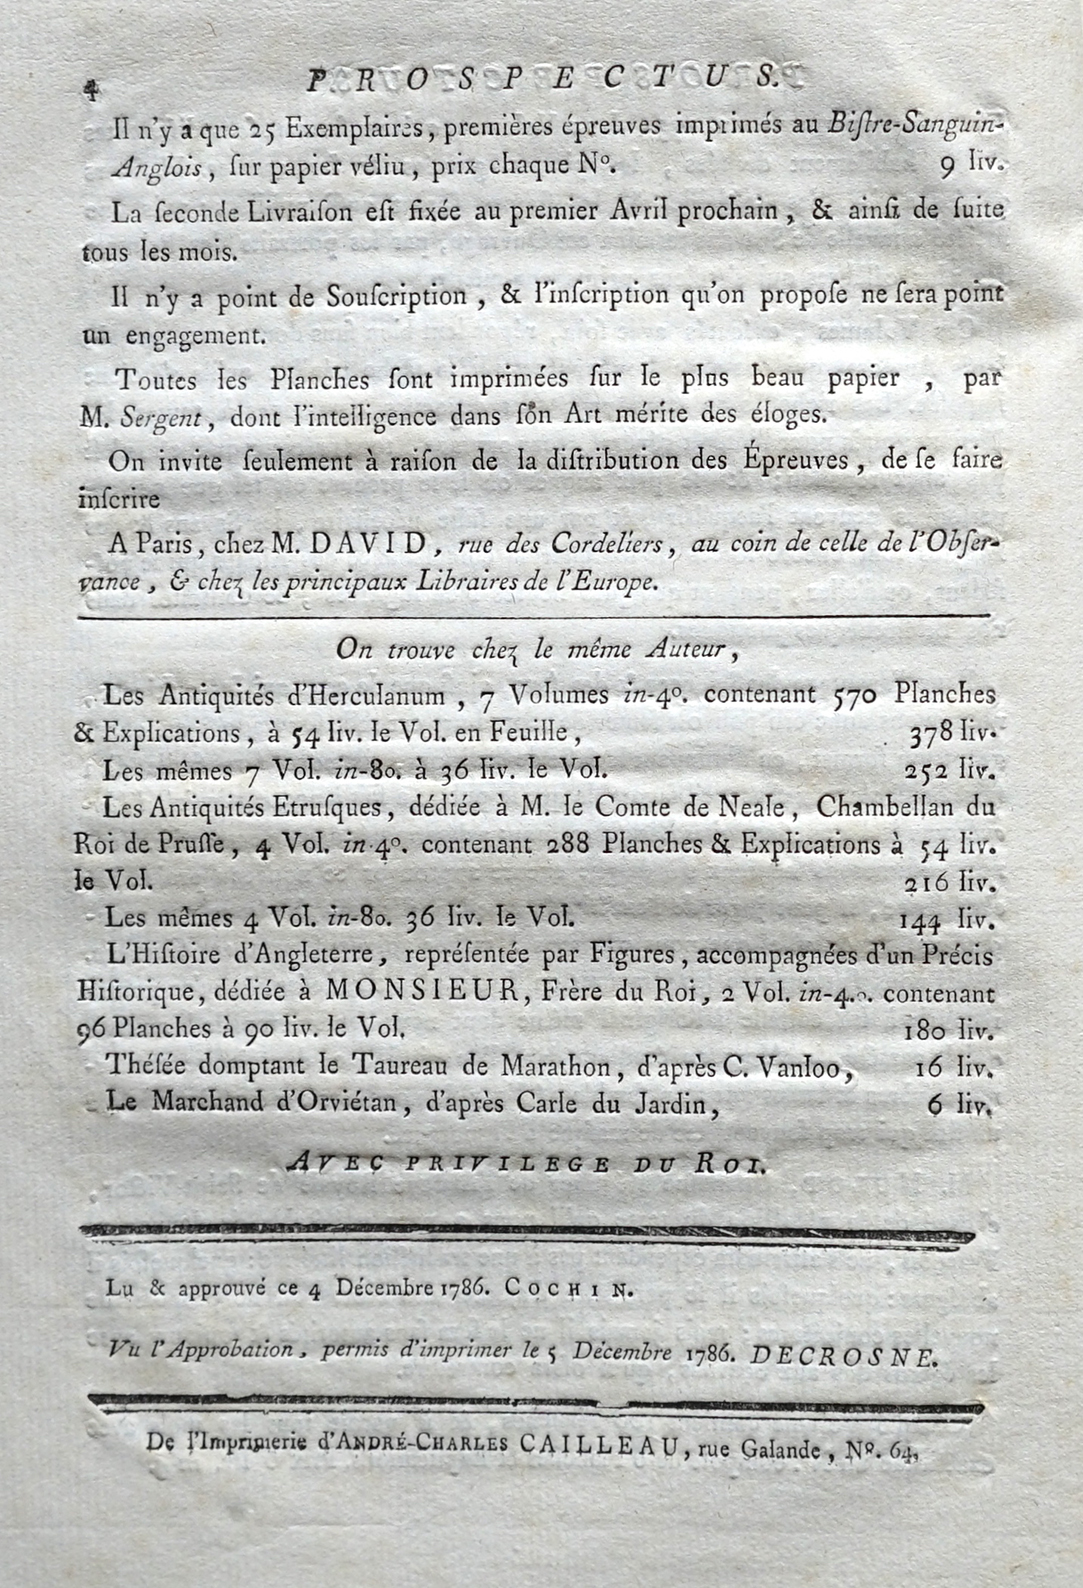 4 PROSPECTUS.
Il n'y a que 25 Exemplaires, premières épreuves imprimés au Biſtre-Sanguin-
Anglois, ſur papier véliu, prix chaque Nº. 9 liv.
La ſeconde Livraiſon eſt fixée au premier Avril prochain, & ainſi de ſuite
tous les mois.
Il n'y a point de Souſcription, & l'inſcription qu'on propoſe ne ſera point
un engagement.
Toutes les Planches ſont imprimées ſur le plus beau papier, par
M. Sergent, dont l'intelligence dans ſon Art mérite des éloges.
On invite ſeulement à raiſon de la diſtribution des Épreuves, de ſe faire
inſcrire
A Paris, chez M. DAVID, rue des Cordeliers, au coin de celle de l'Obſer-
vance, & chez les principaux Libraires de l'Europe.
On trouve chez le même Auteur,
Les Antiquités d'Herculanum, 7 Volumes in-4º. contenant 570 Planches
& Explications, à 54 liv. le Vol. en Feuille, 378 liv.
Les mêmes 7 Vol. in-8o. à 36 liv. le Vol. 252 liv.
Les Antiquités Etruſques, dédiée à M. le Comte de Neale, Chambellan du
Roi de Pruſſe, 4 Vol. in-4º. contenant 288 Planches & Explications à 54 liv.
le Vol. 216 liv.
Les mêmes 4 Vol. in-8o. 36 liv. le Vol. 144 liv.
L'Hiſtoire d'Angleterre, repréſentée par Figures, accompagnées d'un Précis
Hiſtorique, dédiée à MONSIEUR, Frère du Roi, 2 Vol. in-4.º. contenant
96 Planches à 90 liv. le Vol. 180 liv.
Théſée domptant le Taureau de Marathon, d'après C. Vanloo, 16 liv.
Le Marchand d'Orviétan, d'après Carle du Jardin, 6 liv.
AVEC PRIVILEGE DU ROI.
Lu & approuvé ce 4 Décembre 1786. COCHIN.
Vu l'Approbation, permis d'imprimer le 5 Décembre 1786. DECROSNE.
De l'Imprimerie d'ANDRÉ-CHARLES CAILLEAU, rue Galande, Nº. 64,